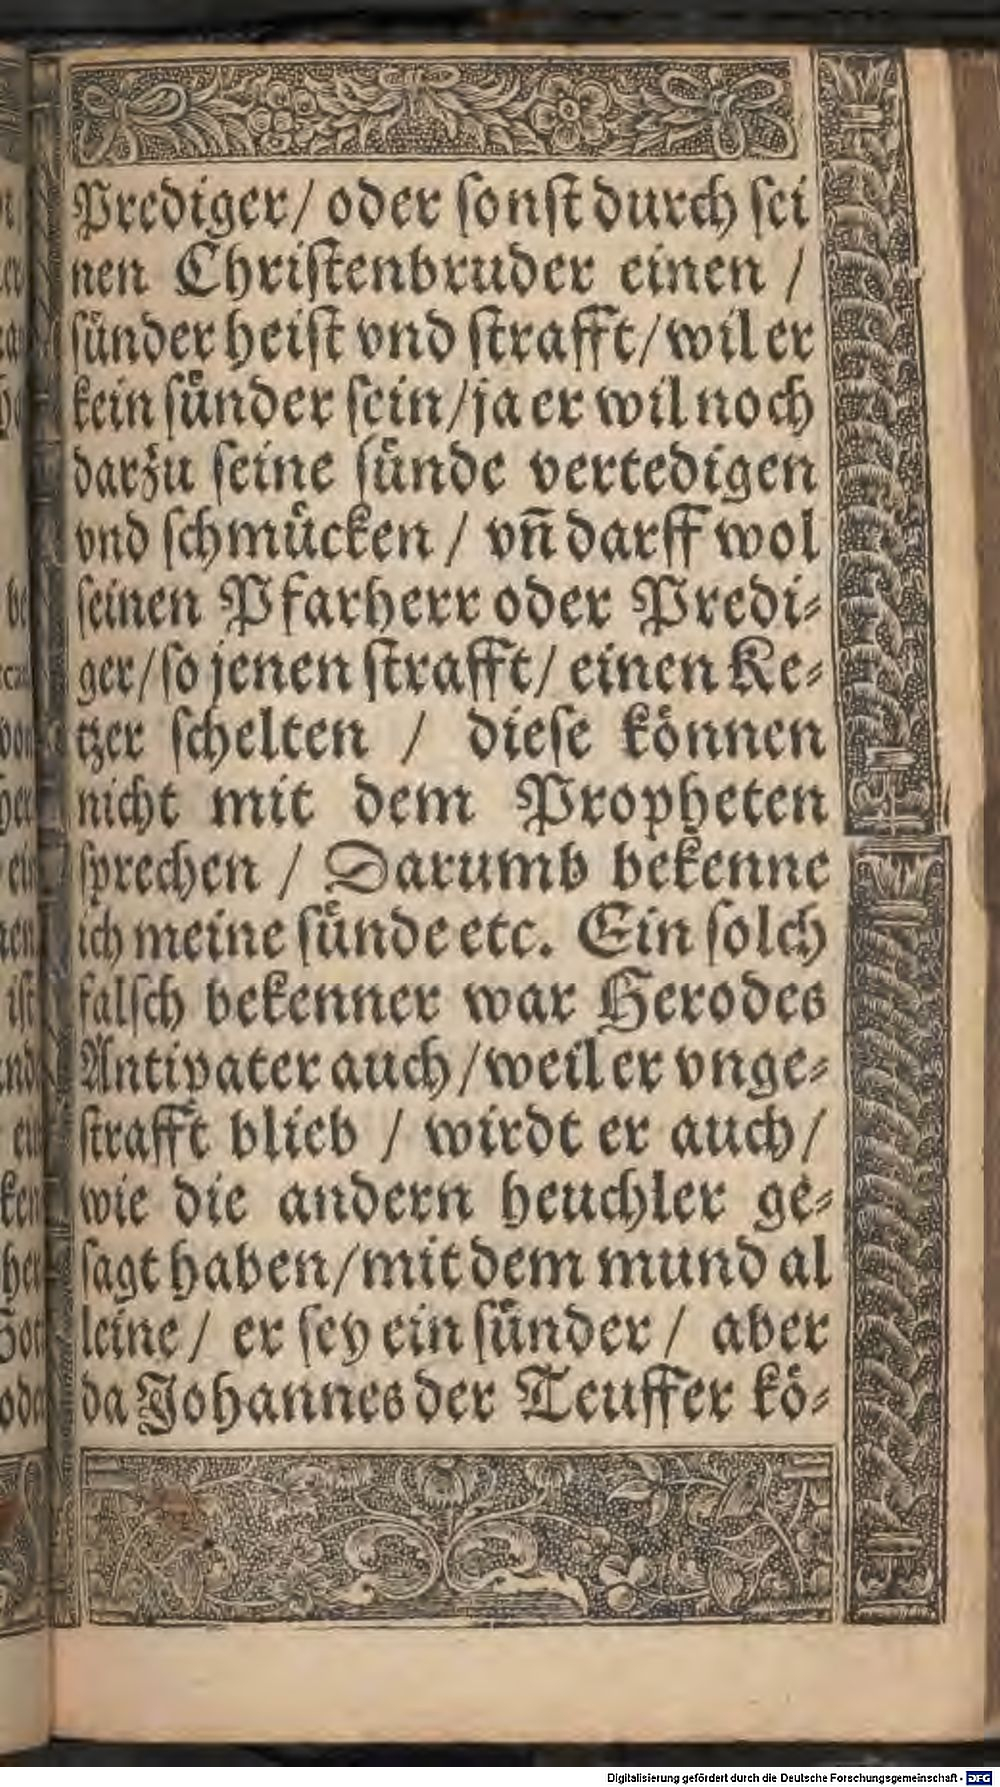 Prediger/ oder ſonſt durch ſei
nen Chriſtenbruder einen /
ſuͤnder heiſt vnd ſtrafft/ wil er
kein ſuͤnder ſein/ ja er wil noch
darzu ſeine ſuͤnde vertedigen
vnd ſchmuͤcken / vn̄ darff wol
ſeinen Pfarherr oder Predi⸗
ger/ ſo jenen ſtrafft/ einen Ke⸗
tzer ſchelten / dieſe koͤnnen
nicht mit dem Propheten
ſprechen / Darumb bekenne
ich meine ſuͤnde etc. Ein ſolch
falſch bekenner war Herodes
Antipater auch / weil er vnge⸗
ſtrafft blieb / wirdt er auch/
wie die andern heuchler ge⸗
ſagt haben/ mit dem mund al
leine/ er ſey ein ſuͤnder / aber
da Johannes der Teuffer koͤ⸗
Digitalisierung gefördert durch die Deutsche Forschungsgemeinschaft - DFG